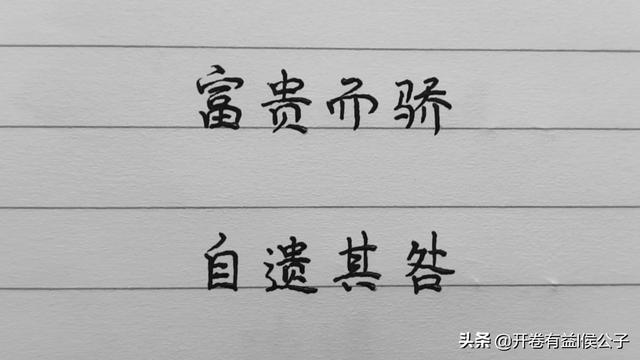 富贵而骄
自遗其咎
头条 @开卷有益I侯公子